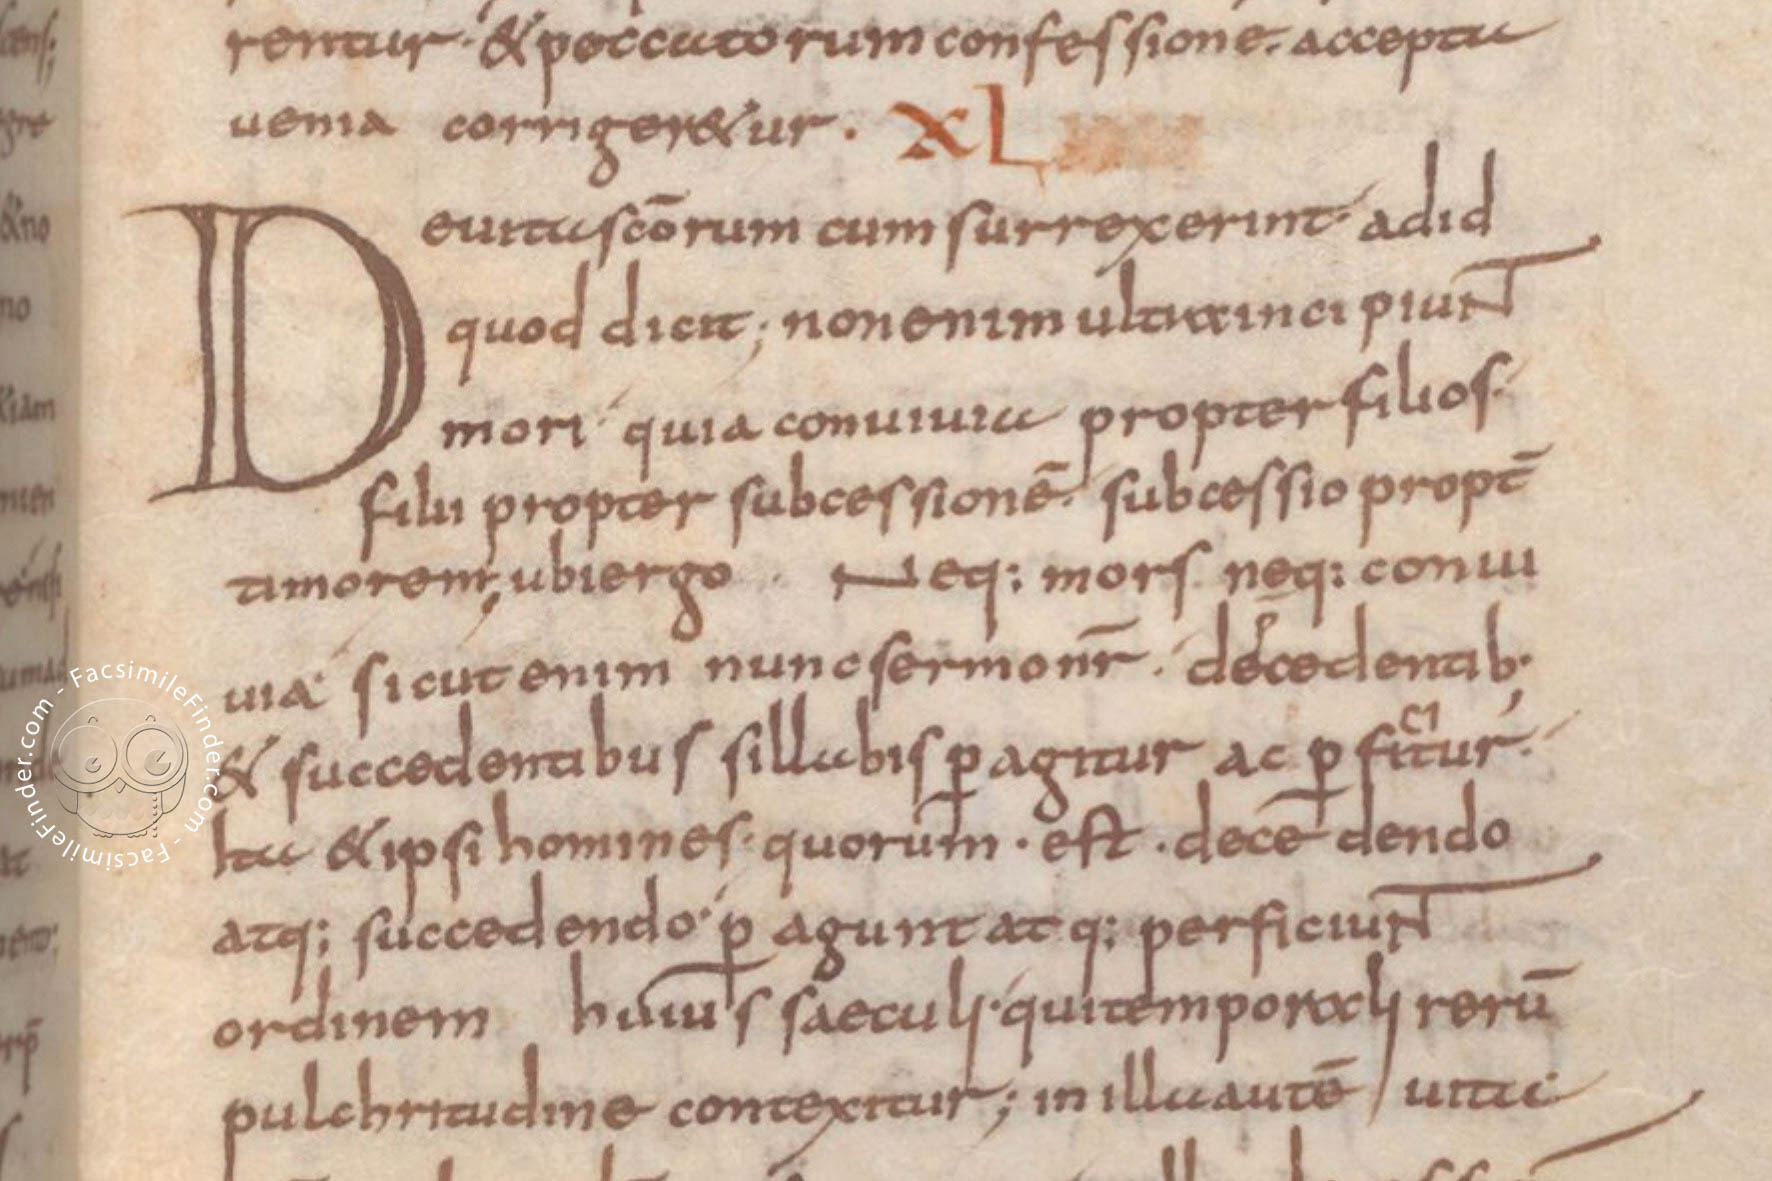 rentur · & peccatorum confessione · accepta
uenia corriger&ur · XL
De uita scōrum cum surrexerint · ad id
quod dicit ; non enim ultra incipiunt
mori · quia conuiuia propter filios ·
filii propter subcessionē · subcessio propt̄
a morem ; ubi ergo · Neq: mors neq: conui
uia · sicut enim nunc sermo nr̄ · decedentib;
& succedentibus sillabis p̲agitur ac p̲ficitur ·
Ita & ipsi homines · quorum · est · decedendo
atq: succedendo · p̲agunt atq: perficiunt
ordinem huius saeculi · qui temporali rerū
pulchritudine contexitur ; in illa autē uita
FacsimileFinder.com - FacsimileFinder.com -